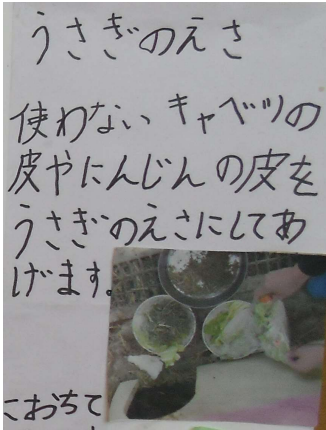 うさぎのえさ
使わない キャベツの
皮やにんじんの皮を
うさぎのえさにしてあ
げます。
におちて